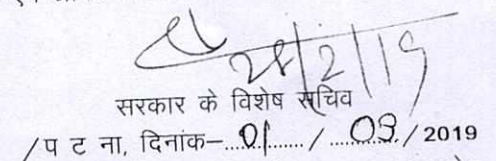 28/2/19
सरकार के विशेष सचिव
/प ट ना, दिनांक–..01....../ ....03../2019